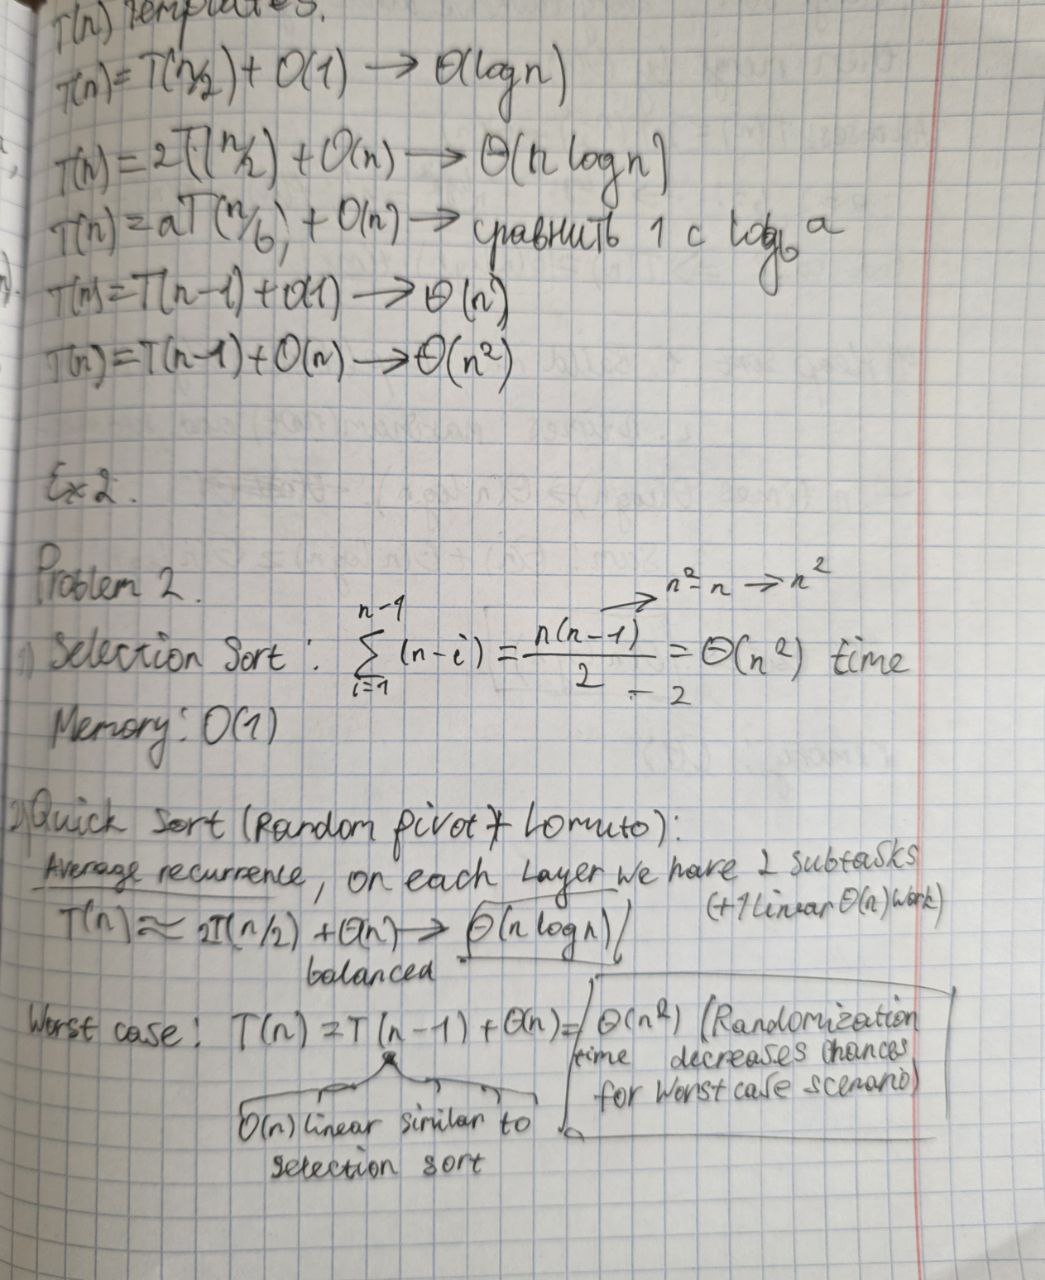 T(n) templates.
T(n) = T(n/2) + O(1) → Θ(log n)
T(n) = 2T(n/2) + O(n) → Θ(n log n)
T(n) = aT(n/b) + O(n) → сравнить 1 с log_b a
T(n) = T(n-1) + O(1) → Θ(n)
T(n) = T(n-1) + O(n) → Θ(n²)
Ex 2.
Problem 2.
1) Selection Sort: ∑_{i=1}^{n-1} (n-i) = n(n-1)/2 = Θ(n²) time
→ n² - n → n²
- 2
Memory: O(1)
2) Quick Sort (Random pivot + Lomuto):
Average recurrence, on each Layer we have 2 subtasks
(+1 linear Θ(n) work)
T(n) ≈ 2T(n/2) + Θ(n) → Θ(n log n)
balanced
Worst case: T(n) = T(n-1) + Θ(n) = Θ(n²) (Randomization
time decreases chances
for worst case scenario)
O(n) linear similar to
selection sort